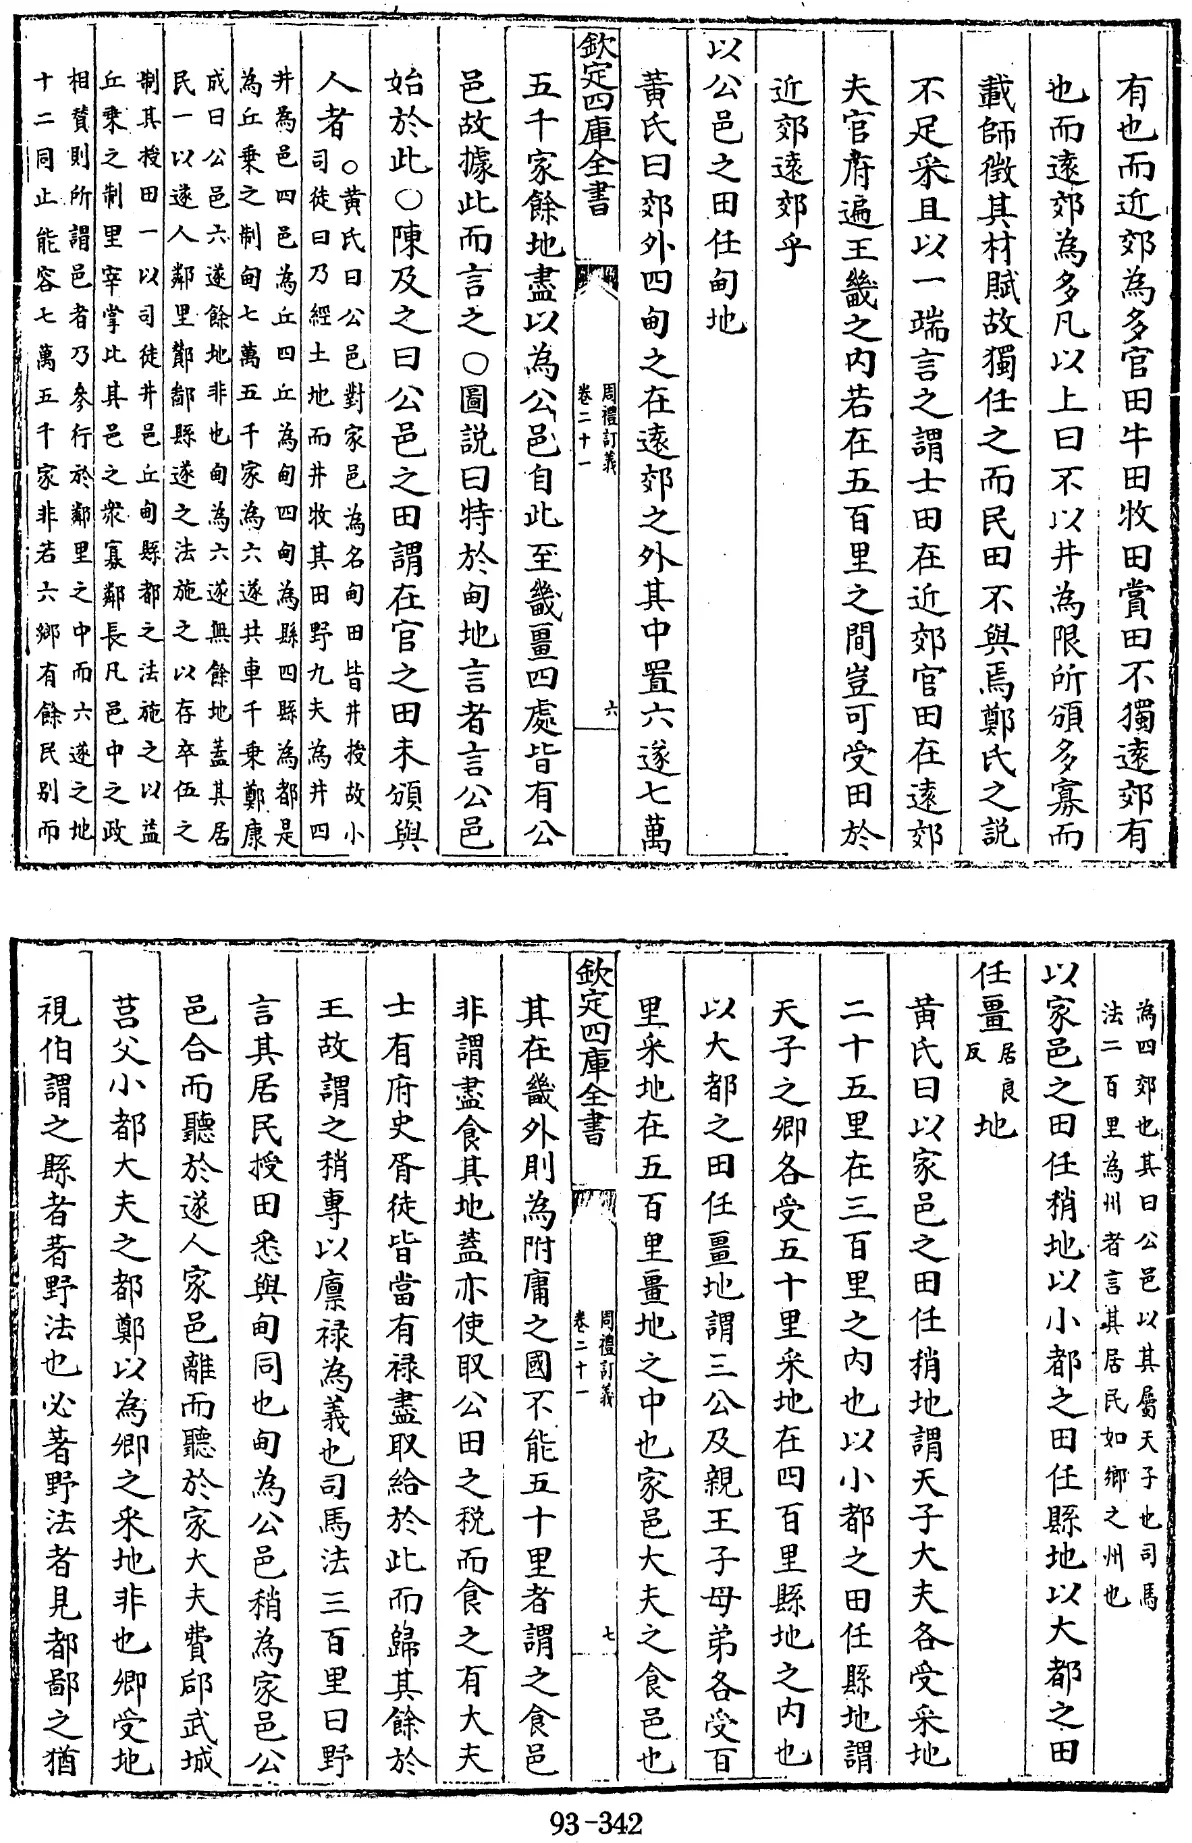 有也而近郊為多官田牛田牧田賞田不獨逺郊有
也而逺郊為多凡以上曰不以井為限所頒多寡而
載師徴其材賦故獨任之而民田不與焉鄭氏之説
不足采且以一端言之謂士田在近郊官田在逺郊
夫官府遍王畿之内若在五百里之間豈可受田於
近郊逺郊乎
以公邑之田任甸地
黄氏曰郊外四甸之在逺郊之外其中置六遂七萬
欽定四庫全書
周禮訂義
卷二十一
六
五千家餘地盡以為公邑自此至畿畺四處皆有公
邑故據此而言之○圖説曰特於甸地言者言公邑
始於此○陳及之曰公邑之田謂在官之田未頒與
人者○黄氏曰公邑對家邑為名甸田皆井授故小
司徒曰乃經土地而井牧其田野九夫為井四
井為邑四邑為丘四丘為甸四甸為縣四縣為都是
為丘乗之制甸七萬五千家為六遂共車千乗鄭康
成曰公邑六遂餘地非也甸為六遂無餘地蓋其居
民一以遂人鄰里酇鄙縣遂之法施之以存卒伍之
制其授田一以司徒井邑丘甸縣都之法施之以益
丘乗之制里宰掌比其邑之衆寡鄰長凡邑中之政
相賛則所謂邑者乃參行於鄰里之中而六遂之地
十二同止能容七萬五千家非若六鄉有餘民别而
為四郊也其曰公邑以其屬天子也司馬
法二百里為州者言其居民如鄉之州也
以家邑之田任稍地以小都之田任縣地以大都之田
任畺居良反地
黄氏曰以家邑之田任稍地謂天子大夫各受采地
二十五里在三百里之内也以小都之田任縣地謂
天子之卿各受五十里采地在四百里縣地之内也
以大都之田任畺地謂三公及親王子母弟各受百
里采地在五百里畺地之中也家邑大夫之食邑也
欽定四庫全書
周禮訂義
卷二十一
七
其在畿外則為附庸之國不能五十里者謂之食邑
非謂盡食其地蓋亦使取公田之税而食之有大夫
士有府史胥徒皆當有禄盡取給於此而歸其餘於
王故謂之稍專以廪禄為義也司馬法三百里曰野
言其居民授田悉與甸同也甸為公邑稍為家邑公
邑合而聽於遂人家邑離而聽於家大夫費郈武城
莒父小都大夫之都鄭以為卿之采地非也卿受地
視伯謂之縣者著野法也必著野法者見都鄙之猶
93-342